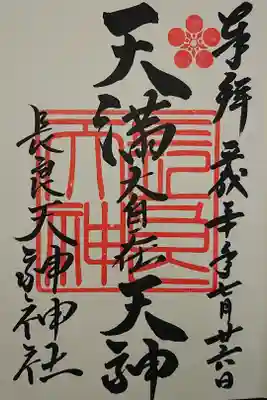 奉拝 平成三十年七月廿六日
天満大自在天神
長良天神神社
長良天神